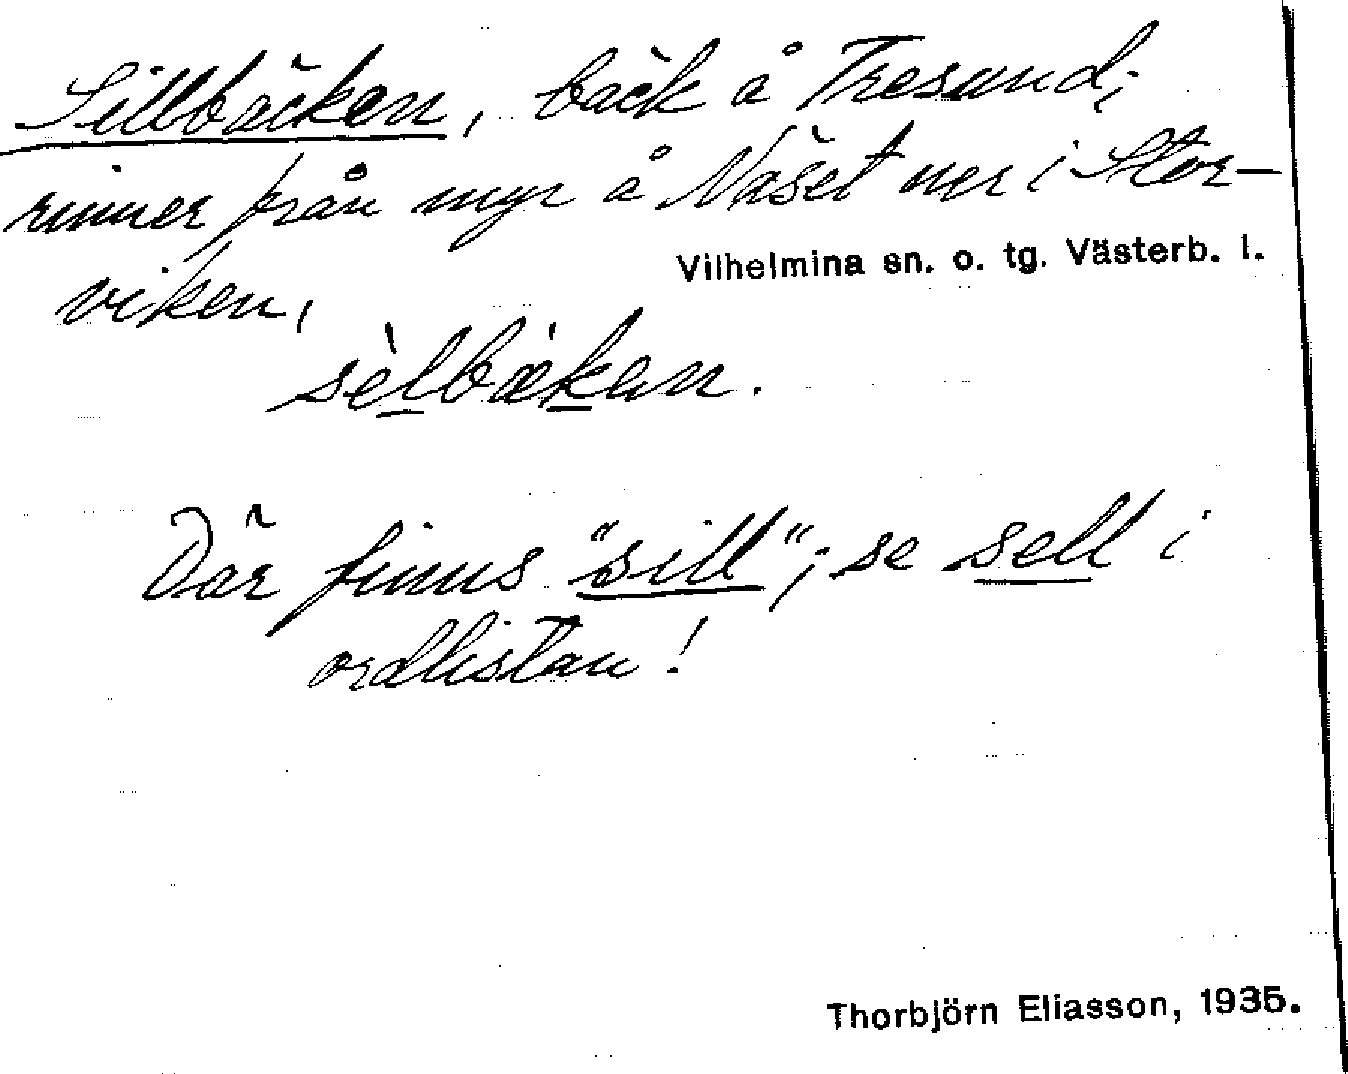 Sillbäcken, bäck å Tresund;
rinner från myr å Näset ner i Stor-
Vilhelmina sn. o. tg. Västerb. l.
viken,
sèlbækan.
Där finns "sill"; se sell i
ordlistan!
Thorbjörn Eliasson, 1935.